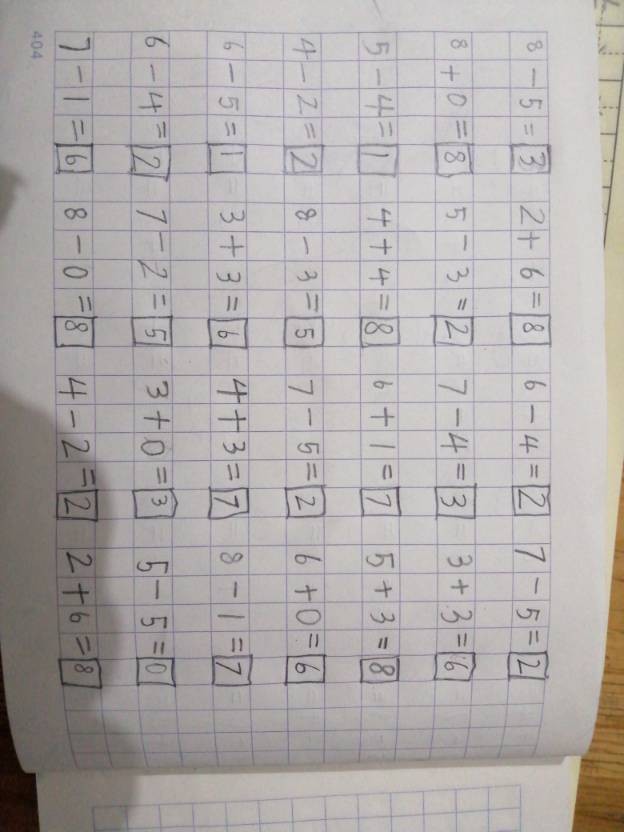 8-5=3 2+6=8 6-4=2 7-5=2
8+0=8 5-3=2 7-4=3 3+3=6
5-4=1 4+4=8 6+1=7 5+3=8
4-2=2 8-3=5 7-5=2 6+0=6
6-5=1 3+3=6 4+3=7 8-1=7
6-4=2 7-2=5 3+0=3 5-5=0
7-1=6 8-0=8 4-2=2 2+6=8
404